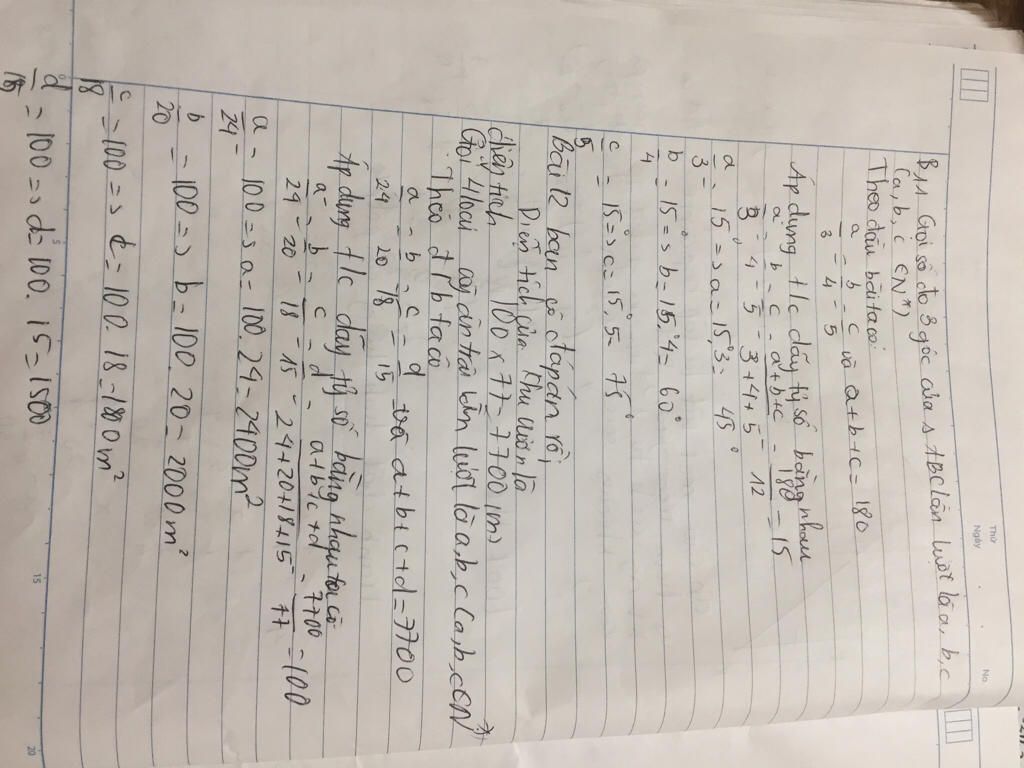 Thứ
Ngày
No.
B11 Gọi số đo 3 góc của △ ABC lần lượt là a, b, c
(a, b, c ∈ N*)
Theo đầu bài ta có:
a/3 = b/4 = c/5 và a+b+c = 180
Áp dụng t/c dãy tỷ số bằng nhau
a/3 = b/4 = c/5 = a+b+c/3+4+5 = 180/12 = 15
a/3 = 15° => a = 15°.3 = 45°
b/4 = 15° => b = 15°.4 = 60°
c/5 = 15° => c = 15°.5 = 75°
Bài 12 bạn có đáp án rồi
Diện tích của khu vườn là
100 x 77 = 7700 (m)
diện tích
Gọi 4 loại cây ăn trái lần lượt là a, b, c (a, b, c ∈ N*)
Theo đ/b ta có
a/24 = b/20 = c/18 = d/15 và a+b+c+d = 7700
Áp dụng t/c dãy tỷ số bằng nhau ta có
a/24 = b/20 = c/18 = d/15 = a+b+c+d/24+20+18+15 = 7700/77 = 100
a/24 = 100 => a = 100.24 = 2400m²
b/20 = 100 => b = 100.20 = 2000m²
c/18 = 100 => c = 100.18 = 1800m²
d/15 = 100 => d = 100.15 = 1500
5
15
20